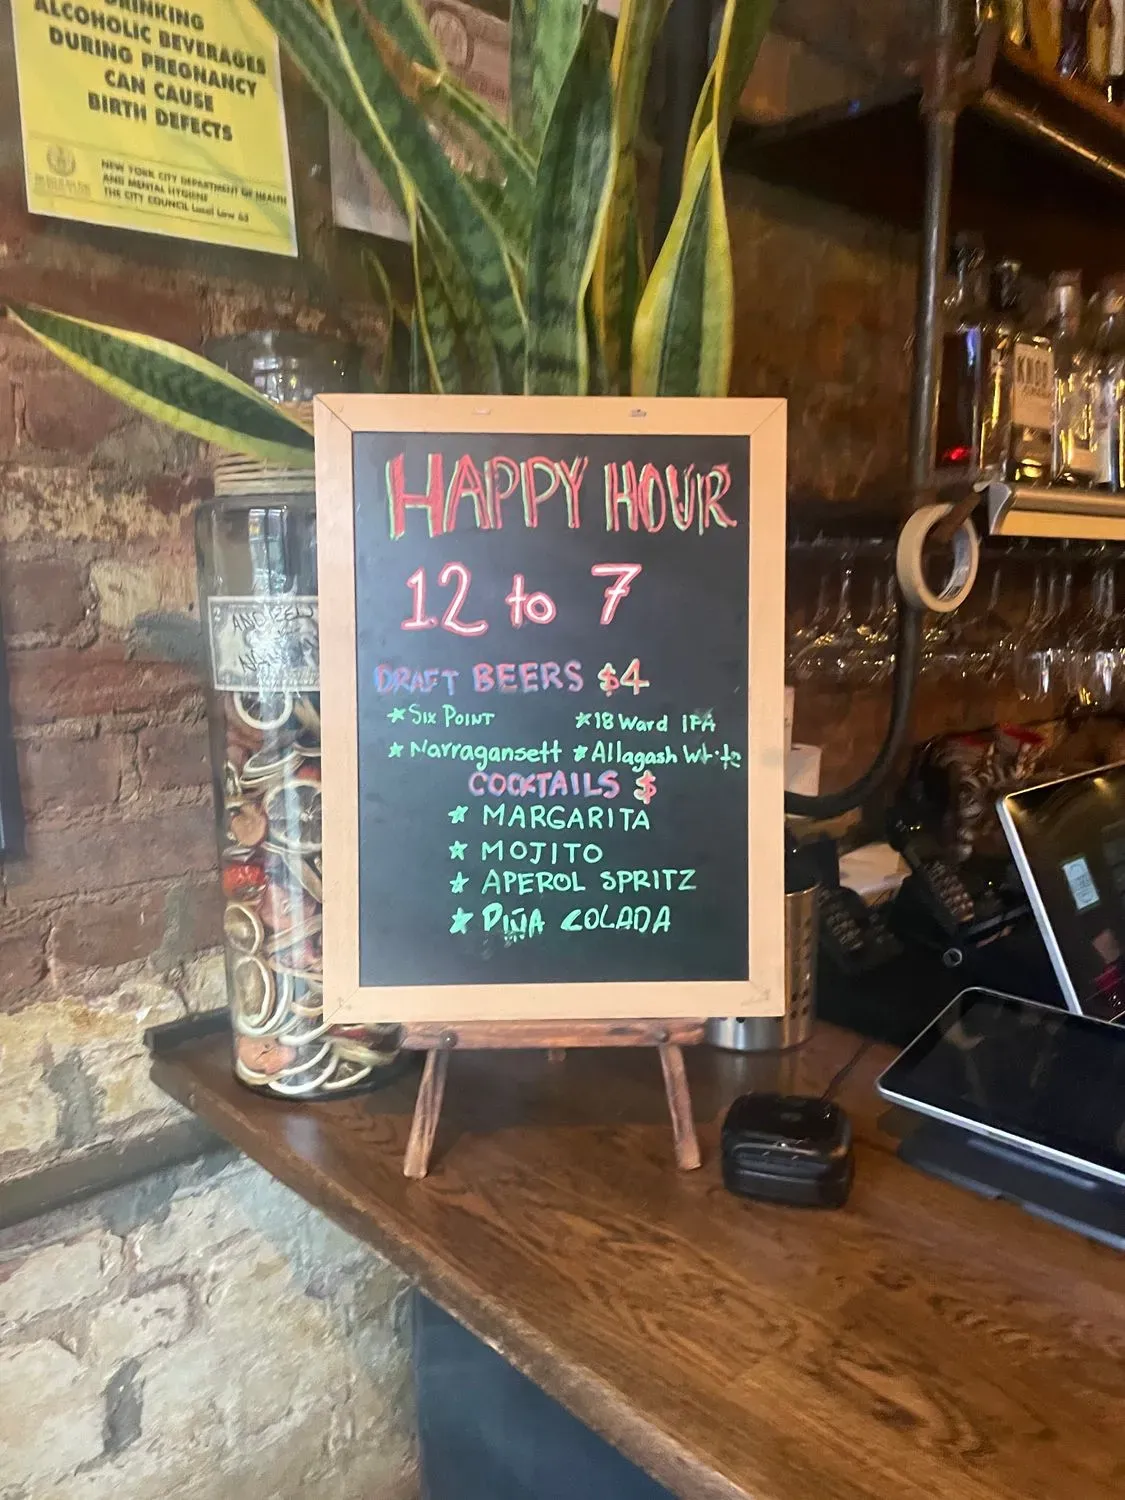 DRINKING
ALCOHOLIC BEVERAGES
DURING PREGNANCY
CAN CAUSE
BIRTH DEFECTS
NEW YORK CITY DEPARTMENT OF HEALTH
AND MENTAL HYGIENE
THE CITY COUNCIL Local Law 63
HAPPY HOUR
12 to 7
DRAFT BEERS $4
★ Six Point ★ 18 Ward IPA
★ Narragansett ★ Allagash White
COCKTAILS $
★ MARGARITA
★ MOJITO
★ APEROL SPRITZ
★ PIÑA COLADA
KNOB